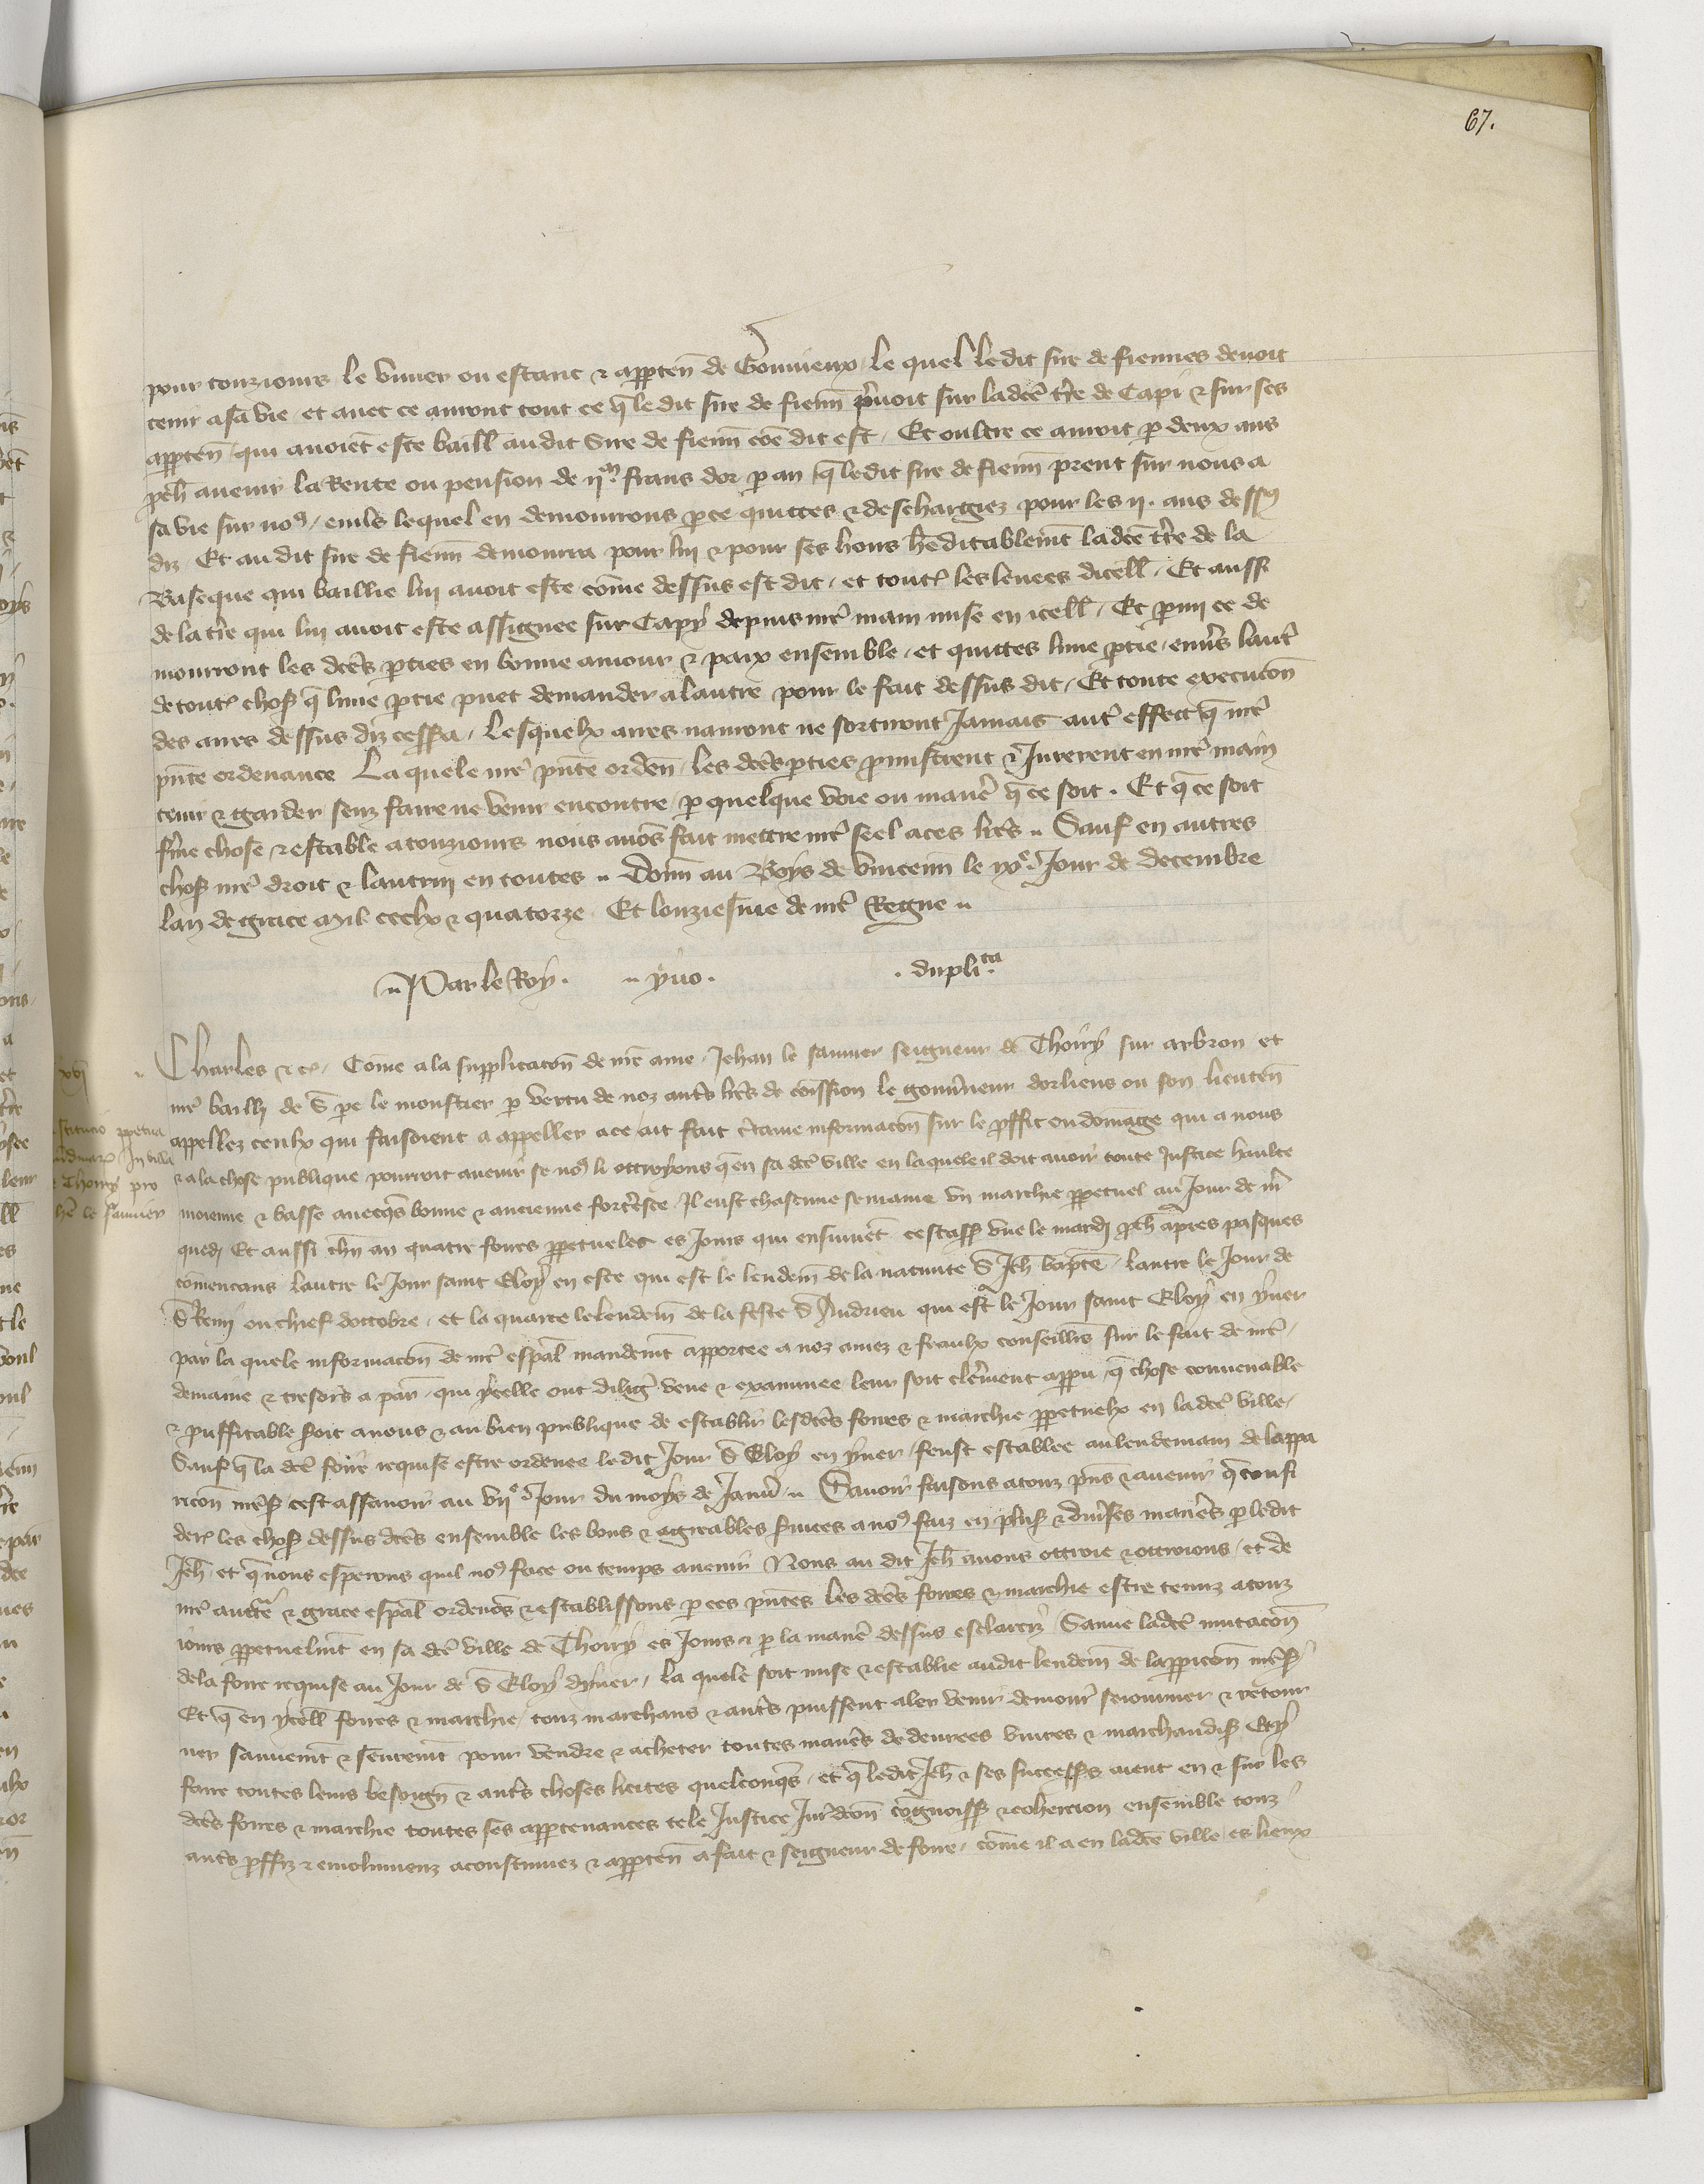 67.
pour touzjours le vivier ou estanc & apparten de Gouvieux, le quel ledit sire de fiennes devoit
tenir a sa vie, et avec ce auront tout ce q̃ le dit sire de fienñ p̃noit sur ladc̃e t̃re de Capi & sur ses
apparteñ, qui avoiẽt este baill audit Sire de fienñ cõe dit est, Et oultre ce auroit p̱ deux ans
p̃ch avenir la Rente ou pension de ij.ᵐ frans dor p̱ an q̃ ledit sire de fienñ prent sur nous a
sa vie sur noꝰ, lequel en demourrons p̱ ce quittes & deschargiez pour les ij. ans dessꝰ
diz. Et au dit sire de fienñ demourra pour lui & pour ses hoirs h̃editablemt̃ ladc̃e t̃re de la
Baseque qui baillie lui avoit este cõme dessus est dit, et toutes les levees dicell, Et aussi
de la t̃re qui lui avoit este assignee sur Capy depuis nr̃e main mise en icell, Et p̱mi ce de
mourront les dc̃es p̱ties en bonne amour & paix ensemble, et quittes lune p̱tie, env̾s laut̾
de toutes choses q̃ lune p̱tie puet demander a lautre pour le fait dessus dit, Et toute execucõn
des arres dessus diz cessera, Lesquelx arres nauront ne sortiront Jamais aut̾ effect q̃ nr̃e
p̃nte ordenance La quele nr̃e p̃nte ordeñ, les dc̃es p̱ties promistrent & Jurerent en nr̃e main
tenir & garder senz faire ne venir encontre p̱ quelque voie ou manie̾ q̃ ce soit. Et q̃ ce soit
f̾me chose & estable a touzjours nous avõs fait mettre nr̃e seel a ces lr̃es. Sauf en autres
choses nr̃e droit & lautruy en toutes. Donñ au Boys de vinceñn le xxᵉ. Jour de decembre
lan de grace mil cccLx & quatorze, Et lonziesme de nr̃e Regne
Par le Roy. yvo. . dupliᵗᵃ.
xvj
Charles &c̾, Cõme a la supplicacõn de nr̃e ame, Jehan le saunier seigneur de Thoiry sur arbron et
nr̃e bailli de S̃ p̱e le monstier p̱ vertu de noz aut̾s lr̃es de cõission le gouv̾neur dorliens ou son lieuteñ
appellez ceulx qui faisoient a appeller a ce, ait fait c̾taine informacõn sur le p̱ffit ou dõmage qui a nous
& a la chose publique pourroit avenir se noꝰ li ottroyons q̃ en sa dc̃e ville en laquele il doit avoir toute Justice haulte
moienne & basse avecq̃s bonne & ancienne fort̾esce, Il eust chascune sepmaine un marchie p̱petuel au Jour de m̾
quedi Et aussi chũn an quatre foires p̱petueles es Jours qui ensuivẽt cestass̃ lune le mardi p̃ch apres pasques
cõmencans lautre le Jour saint Eloy en este qui est le lendeñ de la nativite S̃ Jeh bapt̃e, lautre le Jour de
S̃ Remi ou chief doctobre, et la quarte le lendeñ de la feste S̃ Andrieu qui est le Jour saint Eloy en yver
par la quele informacõn de nr̃e esp̃al mandemt̃ apportee a noz amez & feaulx conseillrs̃ sur le fait de nr̃e
demaine & tresors a par̃, qui ycelle ont dilig̃ veue & examinee, leur soit clerement appru, q̃ chose convenable
& pruffitable soit a nous & au bien publique de establir lesdc̃es foires & marchie p̱petuelx en ladc̃e ville,
Sauf q̃ la dc̃e foire requise estre ordenee le dit Jour S̃ Eloy en yver, feust establee au lendemain de lappa
ricõn nr̃e s̃, cest assavoir au vijᵉ. Jour du moys de Janv̾. Savoir faisons a touz p̃ns & avenir q̃ consi
der̃ les choses dessus dc̃es ensemble les bons & agreables s̾vices a noꝰ faiz en plus̾s & div̾ses manie̾s p̱ ledit
Jeh, et q̃ nous esperons quil noꝰ face ou temps avenir Nous au dit Jeh avons ottroie & ottroions, et de
nr̃e auctẽ & grace esp̃al ordenõs & establissons p̱ ces p̃ntes les dc̃es foires & marchie estre tenuz a touz
jours p̱petuelmt̃ en sa dc̃e ville de Thoiry es Jours & p̱ la manie̾ dessus esclarciz Sauve ladc̃e mutacõn
de la foire requise au Jour de S̃ Eloy dyver, la quele soit mise & establie audit lendeñ de lapparicõn nr̃e s̃,
Et q̃ en ycell foires & marchie, touz marchans & aut̾s puissent aler venir demour̾ seiourner & retour
ner sauvemt̃ & seuremt̃ pour vendre & acheter toutes manie̾s de denrees vivres & marchandises Et y
faire toutes leurs besoign̾ & aut̾s choses licites quelconq̃s, et q̃ ledit Jeh & ses successs̾ aient en & sur les
dc̃es foires & marchie toutes ses appartenances tele Justice Jurdcõn cõgnoiss̃ & cohercion ensemble touz
aut̾s p̱ffiz & emolumenz acoustumez & apparteñ a fait & seigneur de foire, cõme il a en ladc̃e ville, es lieux